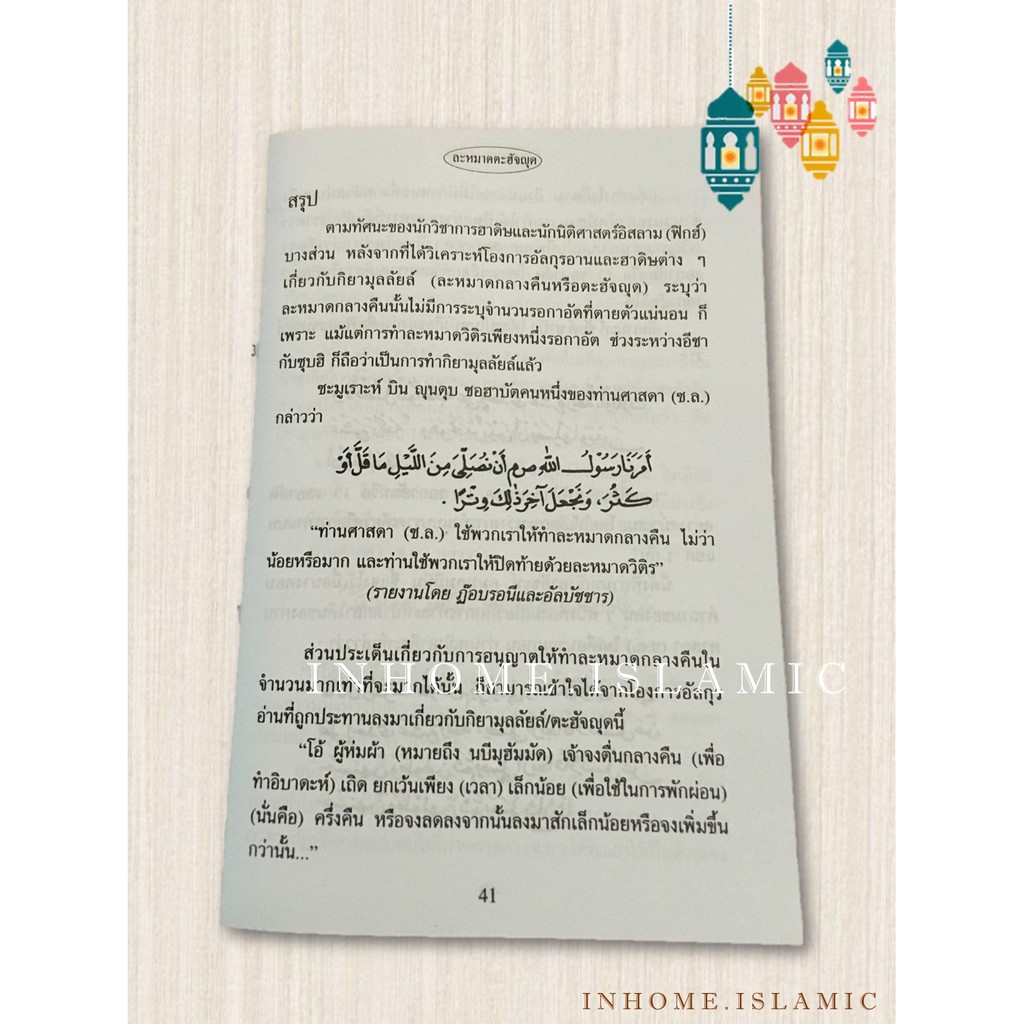 ละหมาดตะฮัจญุด
สรุป
ตามทัศนะของนักวิชาการฮาดิษและนักนิติศาสตร์อิสลาม (ฟิกฮ์)
บางส่วน หลังจากที่ได้วิเคราะห์โองการอัลกุรอานและฮาดิษต่าง ๆ
เกี่ยวกับกิยามุลลัยล์ (ละหมาดกลางคืนหรือตะฮัจญุด) ระบุว่า
ละหมาดกลางคืนนั้นไม่มีการระบุจำนวนรอกาอัตที่ตายตัวแน่นอน ก็
เพราะ แม้แต่การทำละหมาดวิติรเพียงหนึ่งรอกาอัต ช่วงระหว่างอีซา
กับซุบฮิ ก็ถือว่าเป็นการทำกิยามุลลัยล์แล้ว
ซะมูเราะห์ บิน ญุนดุบ ซอฮาบัตคนหนึ่งของท่านศาสดา (ซ.ล.)
กล่าวว่า
أَمَرَنَا رَسُولُ اللهِ صم أَنْ نُصَلِّيَ مِنَ اللَّيْلِ مَا قَلَّ أَوْ
كَثُرَ، وَنَجْعَلَ آخِرَ ذٰلِكَ وِتْرًا .
“ท่านศาสดา (ซ.ล.) ใช้พวกเราให้ทำละหมาดกลางคืน ไม่ว่า
น้อยหรือมาก และท่านใช้พวกเราให้ปิดท้ายด้วยละหมาดวิติร”
(รายงานโดย ฏ๊อบรอนีและอัลบัซซาร)
ส่วนประเด็นเกี่ยวกับการอนุญาตให้ทำละหมาดกลางคืนใน
INHOME.ISLAMIC
จำนวนมากเท่าที่จะมากได้นั้น ก็สามารถเข้าใจได้จากโองการอัลกุร
อ่านที่ถูกประทานลงมาเกี่ยวกับกิยามุลลัยล์/ตะฮัจญุดนี้
“โอ้ ผู้ห่มผ้า (หมายถึง นบีมุฮัมมัด) เจ้าจงตื่นกลางคืน (เพื่อ
ทำอิบาดะห์) เถิด ยกเว้นเพียง (เวลา) เล็กน้อย (เพื่อใช้ในการพักผ่อน)
(นั่นคือ) ครึ่งคืน หรือจงลดลงจากนั้นลงมาสักเล็กน้อยหรือจงเพิ่มขึ้น
กว่านั้น...”
41
INHOME.ISLAMIC